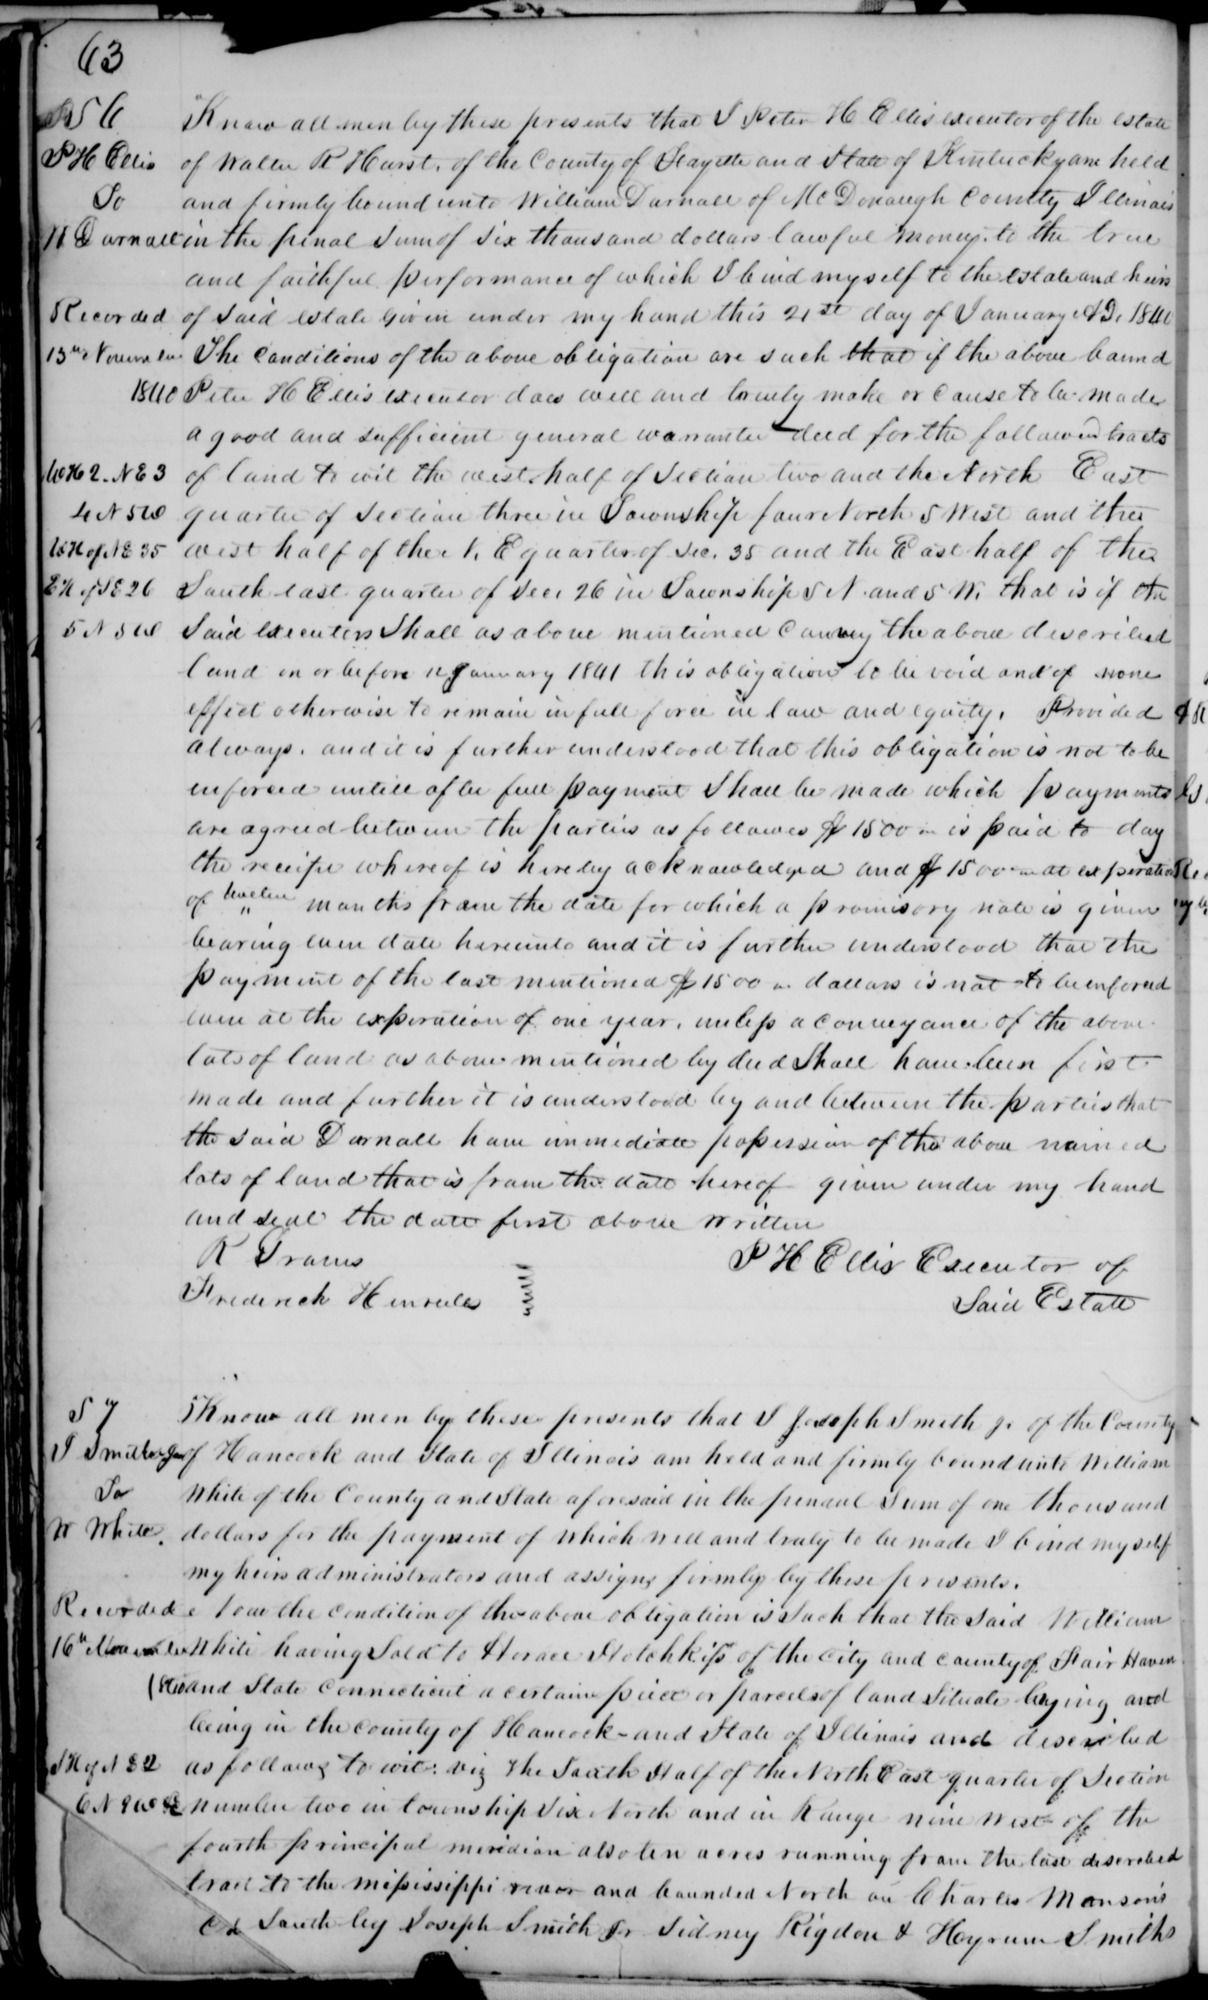 63
P 56
P H Ellis
To
W Darnall
Recorded
13th November
1840
W H 2. N E 3
4 N 5 W
W H of N E 35
E H of S E 26
5 N 5 W
Know all men by these presents that I Peter H Ellis executor of the estate
of Walter R Hurst, of the County of Fayette and State of Kentucky am held
and firmly bound unto William Darnall of McDonaugh County Illinois
in the penal sum of six thousand dollars lawful money. to the true
and faithful performance of which I bind myself to the estate and heirs
of said estate given under my hand this 21st day of January AD. 1840
The conditions of the above obligation are such that if the above bound
Peter H Ellis executor does well and truely make or cause to be made
a good and sufficient general warrantee deed for the following tracts
of land to wit the west half of Section two and the North East
quarter of section three in Township four North 5 West and the
west half of the N. E quarter of Sec. 35 and the East half of the
South east quarter of Sec. 26 in Township 5 N. and 5 W. that is if the
said executors shall as above mentioned convey the above described
land on or before January 1841 this obligation to be void and of none
effect otherwise to remain in full force in law and equity. Provided
always. and it is further understood that this obligation is not to be
enforced untill after full payment shall be made which payments
are agreed between the parties as followes $ 1500 is paid to day
the receipt whereof is hereby acknowledged and $ 1500 at experation
of twelve months from the date for which a promisory note is given
bearing even date hereunto and it is further understood that the
payment of the last mentioned $ 1500 dollars is not to be enforced
even at the experation of one year. unless a conveyance of the above
lots of land as above mentioned by deed shall have been first
made and further it is understood by and between the parties that
the said Darnall have immediate possession of the above named
lots of land that is from the date hereof given under my hand
and seal the date first above written
R
Frederick
P H Ellis Executor of
Said Estate
57
J Smith Jr
To
W White.
Recorded
16th November
1840
S H of N E 2
6 N 9 W
Know all men by these presents that I Joseph Smith Jr. of the County
of Hancock and State of Illinois am held and firmly bound unto William
White of the County and State aforesaid in the penaul sum of one thousand
dollars for the payment of which well and truly to be made I bind myself
my heirs administrators and assigns firmly by these presents.
Now the condition of the above obligation is such that the said William
White having sold to Horace Hotchkiss of the city and county of Fair Haven
and State Connecticut a certain piece or parcels of land situate laying and
being in the county of Hancock and State of Illinois and described
as follows to wit: viz The South Half of the North East quarter of Section
number two in township six North and in Range nine West of the
fourth principal meridian also ten acres running from the last described
tract to the mississippi river and bounded North on Charles Monson's
South by Joseph Smith Jr Sidney Rigdon & Hyrum Smiths